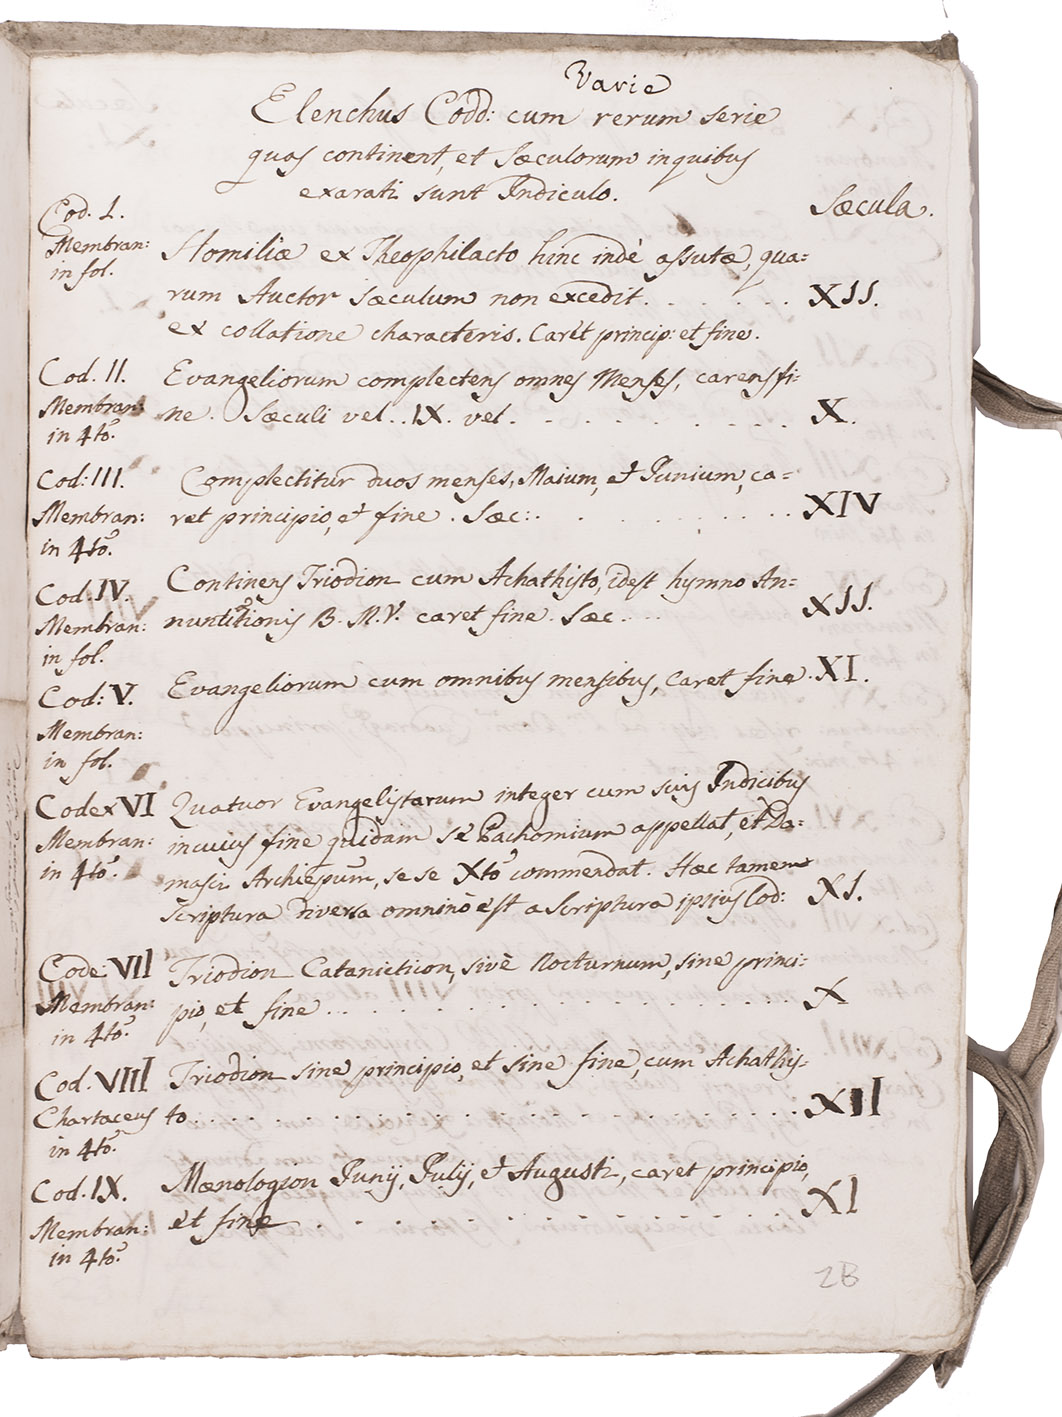 Varie
Elenchus Codd: cum rerum serie
quas continent, et Sæculorum in quibus
exarati sunt Indiculo.
Sæcula.
Cod. I.
Membran:
in fol.
Homiliæ ex Theophilacto hinc indè assutæ, qua=
rum Auctor sæculum non excedit . . . . . . XII.
ex collatione characteris. Caret princip: et fine.
Cod. II.
Membran:
in 4to.
Evangeliorum complectens omnes Menses, carens fi=
ne. Sæculi vel . . IX. vel . . . . . . . . . X.
Cod: III.
Membran:
in 4to.
Complectitur duos menses, Maium, et Junium, ca=
ret principio, et fine. Sæc: . . . . . . . . . XIV
Cod. IV.
Membran:
in fol.
Continens Triodion cum Achathisto, idest hymno An=
nuntitionis B. M. V. caret fine. Sæc. . . . XII.
Cod: V.
Membran:
in fol.
Evangeliorum cum omnibus mensibus, caret fine. XI.
Codex VI
Membran:
in 4to.
Quatuor Evangelistarum integer cum suis Indicibus
in cuius fine quidam se Pachomium appellat, et Da=
masci Archiepum, se se Xto commendat. Hæc tamen
scriptura diversa omninò est a scriptura ipsius Cod: XI.
Code VII
Membran:
in 4to.
Triodion Catanicticon, sivè Nocturnum, sine princi=
pio, et fine . . . . . . . . . . . . . X
Cod. VIII
Chartaceus
in 4to.
Triodion sine principio, et sine fine, cum Achathis-
to . . . . . . . . . . . . . . . . . . XII
Cod. IX.
Membran:
in 4to.
Mænologion Junij, Julij, et Augusti, caret principio,
et fine . . . . . . . . . . . . . XI
2B